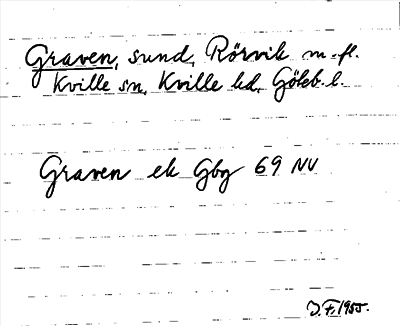 Graven, sund, Rörvik m.fl.
Kville sn, Kville hd, Göteb. l.
Graven ek Gbg 69 NV
J.F. 1955.